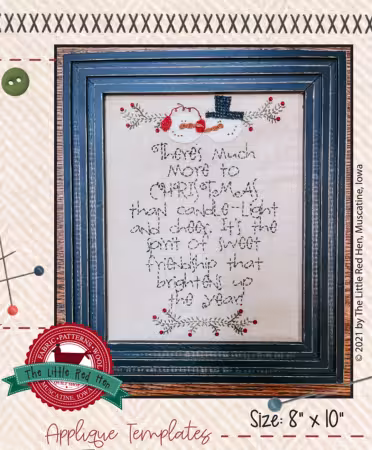 There's Much
More to
CHRISTMAS
than candle-Light
and cheer. It's the
spirit of sweet
friendship that
brightens up
the year!
© 2021 by The Little Red Hen, Muscatine, Iowa
FABRIC • PATTERNS • WOOL
The Little Red Hen
MUSCATINE, IOWA
Size: 8" x 10"
Applique Templates